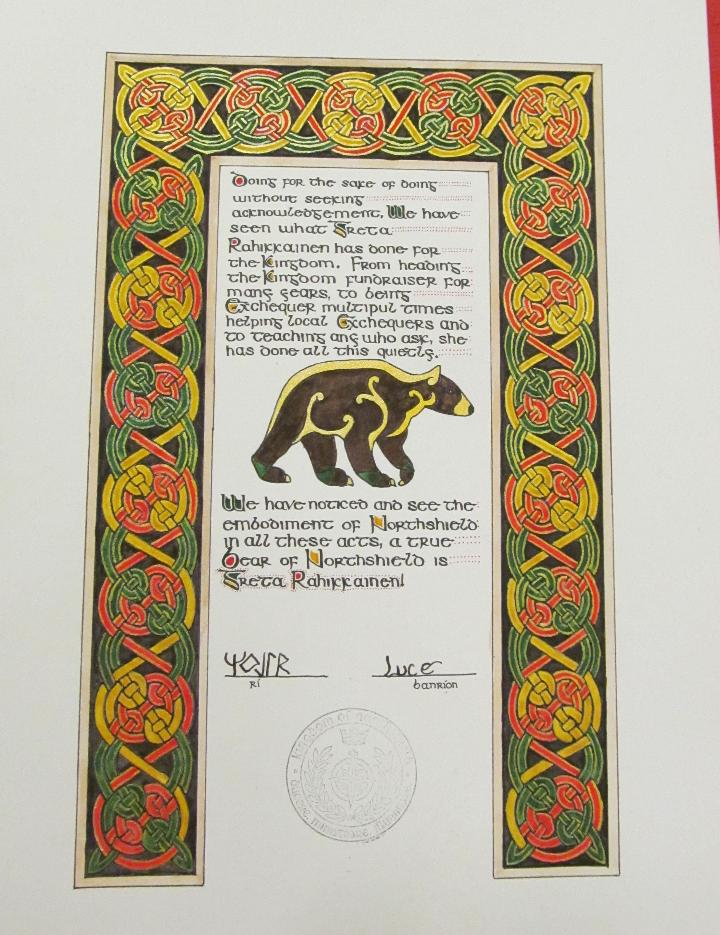 Doing for the sake of doing
without seeking
acknowledgement, We have
seen what Greta
Rahikkainen has done for
the Kingdom. From heading
the Kingdom fundraiser for
many years, to being
Exchequer multipul times
helping local Exchequers and
to teaching any who ask, she
has done all this quietly.
We have noticed and see the
embodiment of Northshield
in all these acts, a true
Bear of Northshield is
Greta Rahikkainen!
Luce
rí
banríon
Kingdom of Northshield